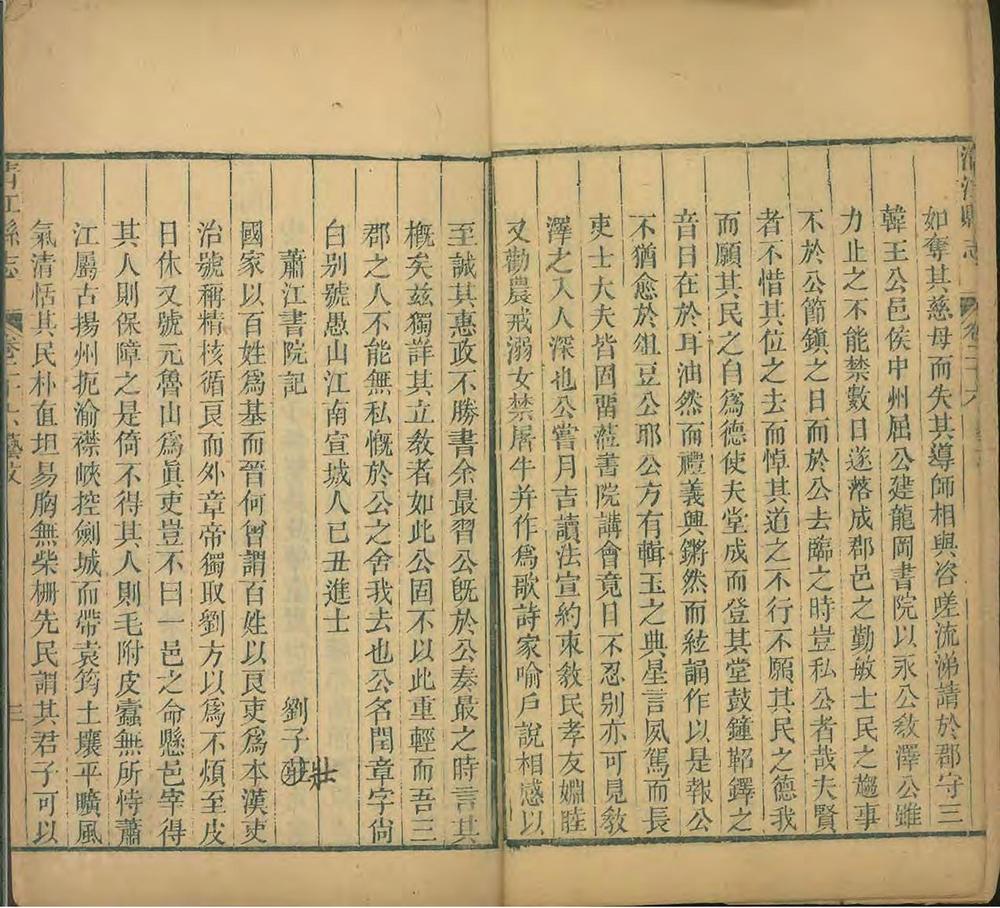 清江縣志
卷二十六
如奪其慈母而失其導師相與咨嗟流涕請於郡守三
韓王公邑侯中州屈公建龍岡書院以永公敎澤公雖
力止之不能禁數日遂落成郡邑之勤敏士民之趨事
不於公節鎮之日而於公去臨之時豈私公者哉夫賢
者不惜其位之去而悼其道之不行不願其民之德我
而願其民之自爲德使夫堂成而登其堂鼓鐘鞀鐸之
音日在於耳油然而禮義興鏘然而絃誦作以是報公
不猶愈於俎豆公耶公方有輯玉之典星言夙駕而長
吏士大夫皆固留蒞書院講會竟日不忍别亦可見敎
澤之入人深也公嘗月吉讀法宣約束敎民孝友婣睦
又勸農戒溺女禁屠牛并作爲歌詩家喻戶說相感以
至誠其惠政不勝書余最習公旣於公奏最之時言其
槪矣兹獨詳其立敎者如此公固不以此重輕而吾三
郡之人不能無私慨於公之舍我去也公名閏章字尙
白别號愚山江南宣城人已丑進士
蕭江書院記
劉子壯
國家以百姓爲基而晉何曾謂百姓以良吏爲本漢吏
治號稱精核循良而外章帝獨取劉方以爲不煩至皮
日休又號元魯山爲眞吏豈不曰一邑之命懸邑宰得
其人則保障之是倚不得其人則毛附皮蠹無所恃蕭
江屬古揚州扼渝襟峽控劍城而帶袁筠土壤平曠風
氣清恬其民朴直坦易胸無柴柵先民謂其君子可以
清江縣志
卷二十六藝文
三